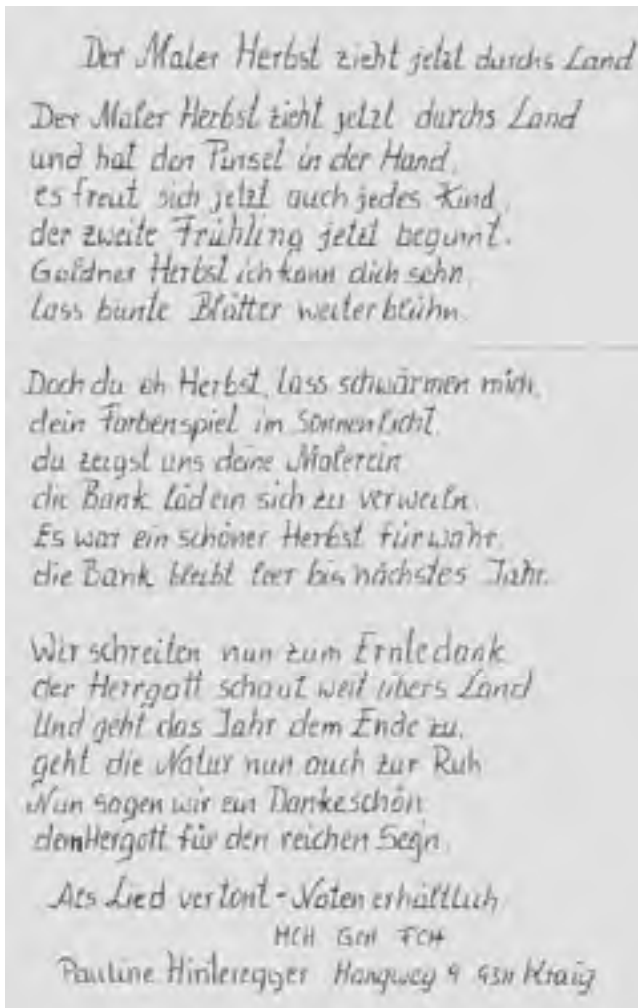 Der Maler Herbst zieht jetzt durchs Land
Der Maler Herbst zieht jetzt durchs Land
und hat den Pinsel in der Hand,
es freut sich jetzt auch jedes Kind,
der zweite Frühling jetzt beginnt.
Goldner Herbst ich kann dich sehn,
lass bunte Blätter weiter blühn.
Doch du oh Herbst, lass schwärmen mich,
dein Farbenspiel im Sonnenlicht,
du zeigst uns deine Malerein
die Bank läd ein sich zu verweiln.
Es war ein schöner Herbst fürwahr,
die Bank bleibt leer bis nächstes Jahr.
Wir schreiten nun zum Erntedank
der Herrgott schaut weit übers Land
Und geht das Jahr dem Ende zu,
geht die Natur nun auch zur Ruh
Nun sagen wir ein Dankeschön
dem Hergott für den reichen Seg'n.
Als Lied vertont - Noten erhältlich
MCH GCH FCH
Pauline Hinteregger Hangweg 9 9311 Kraig